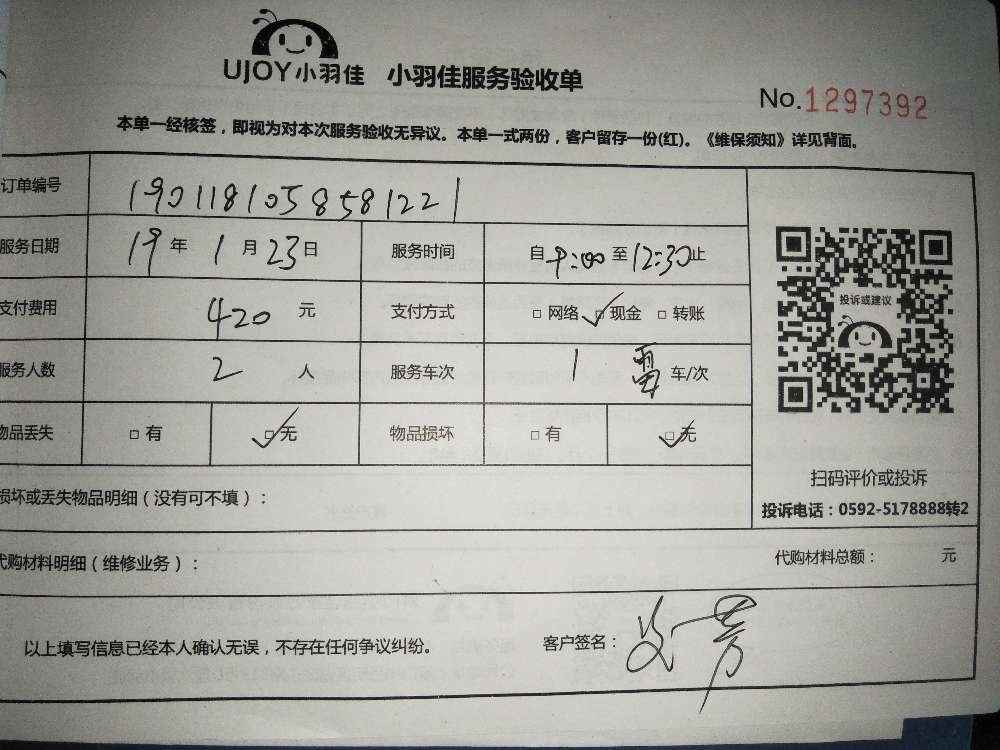 UJOY小羽佳 小羽佳服务验收单
No.1297392
本单一经核签，即视为对本次服务验收无异议。本单一式两份，客户留存一份(红)。《维保须知》详见背面。
订单编号 1901181058581221
服务日期 19年1月23日 服务时间 自9:00至12:30止
支付费用 420元 支付方式 □网络 ✓□现金 □转账
投诉或建议
服务人数 2人 服务车次 1 车/次
物品丢失 □有 ✓□无 物品损坏 □有 ✓□无
扫码评价或投诉
损坏或丢失物品明细（没有可不填）：
投诉电话：0592-5178888转2
代购材料明细（维修业务）： 代购材料总额： 元
以上填写信息已经本人确认无误，不存在任何争议纠纷。 客户签名：